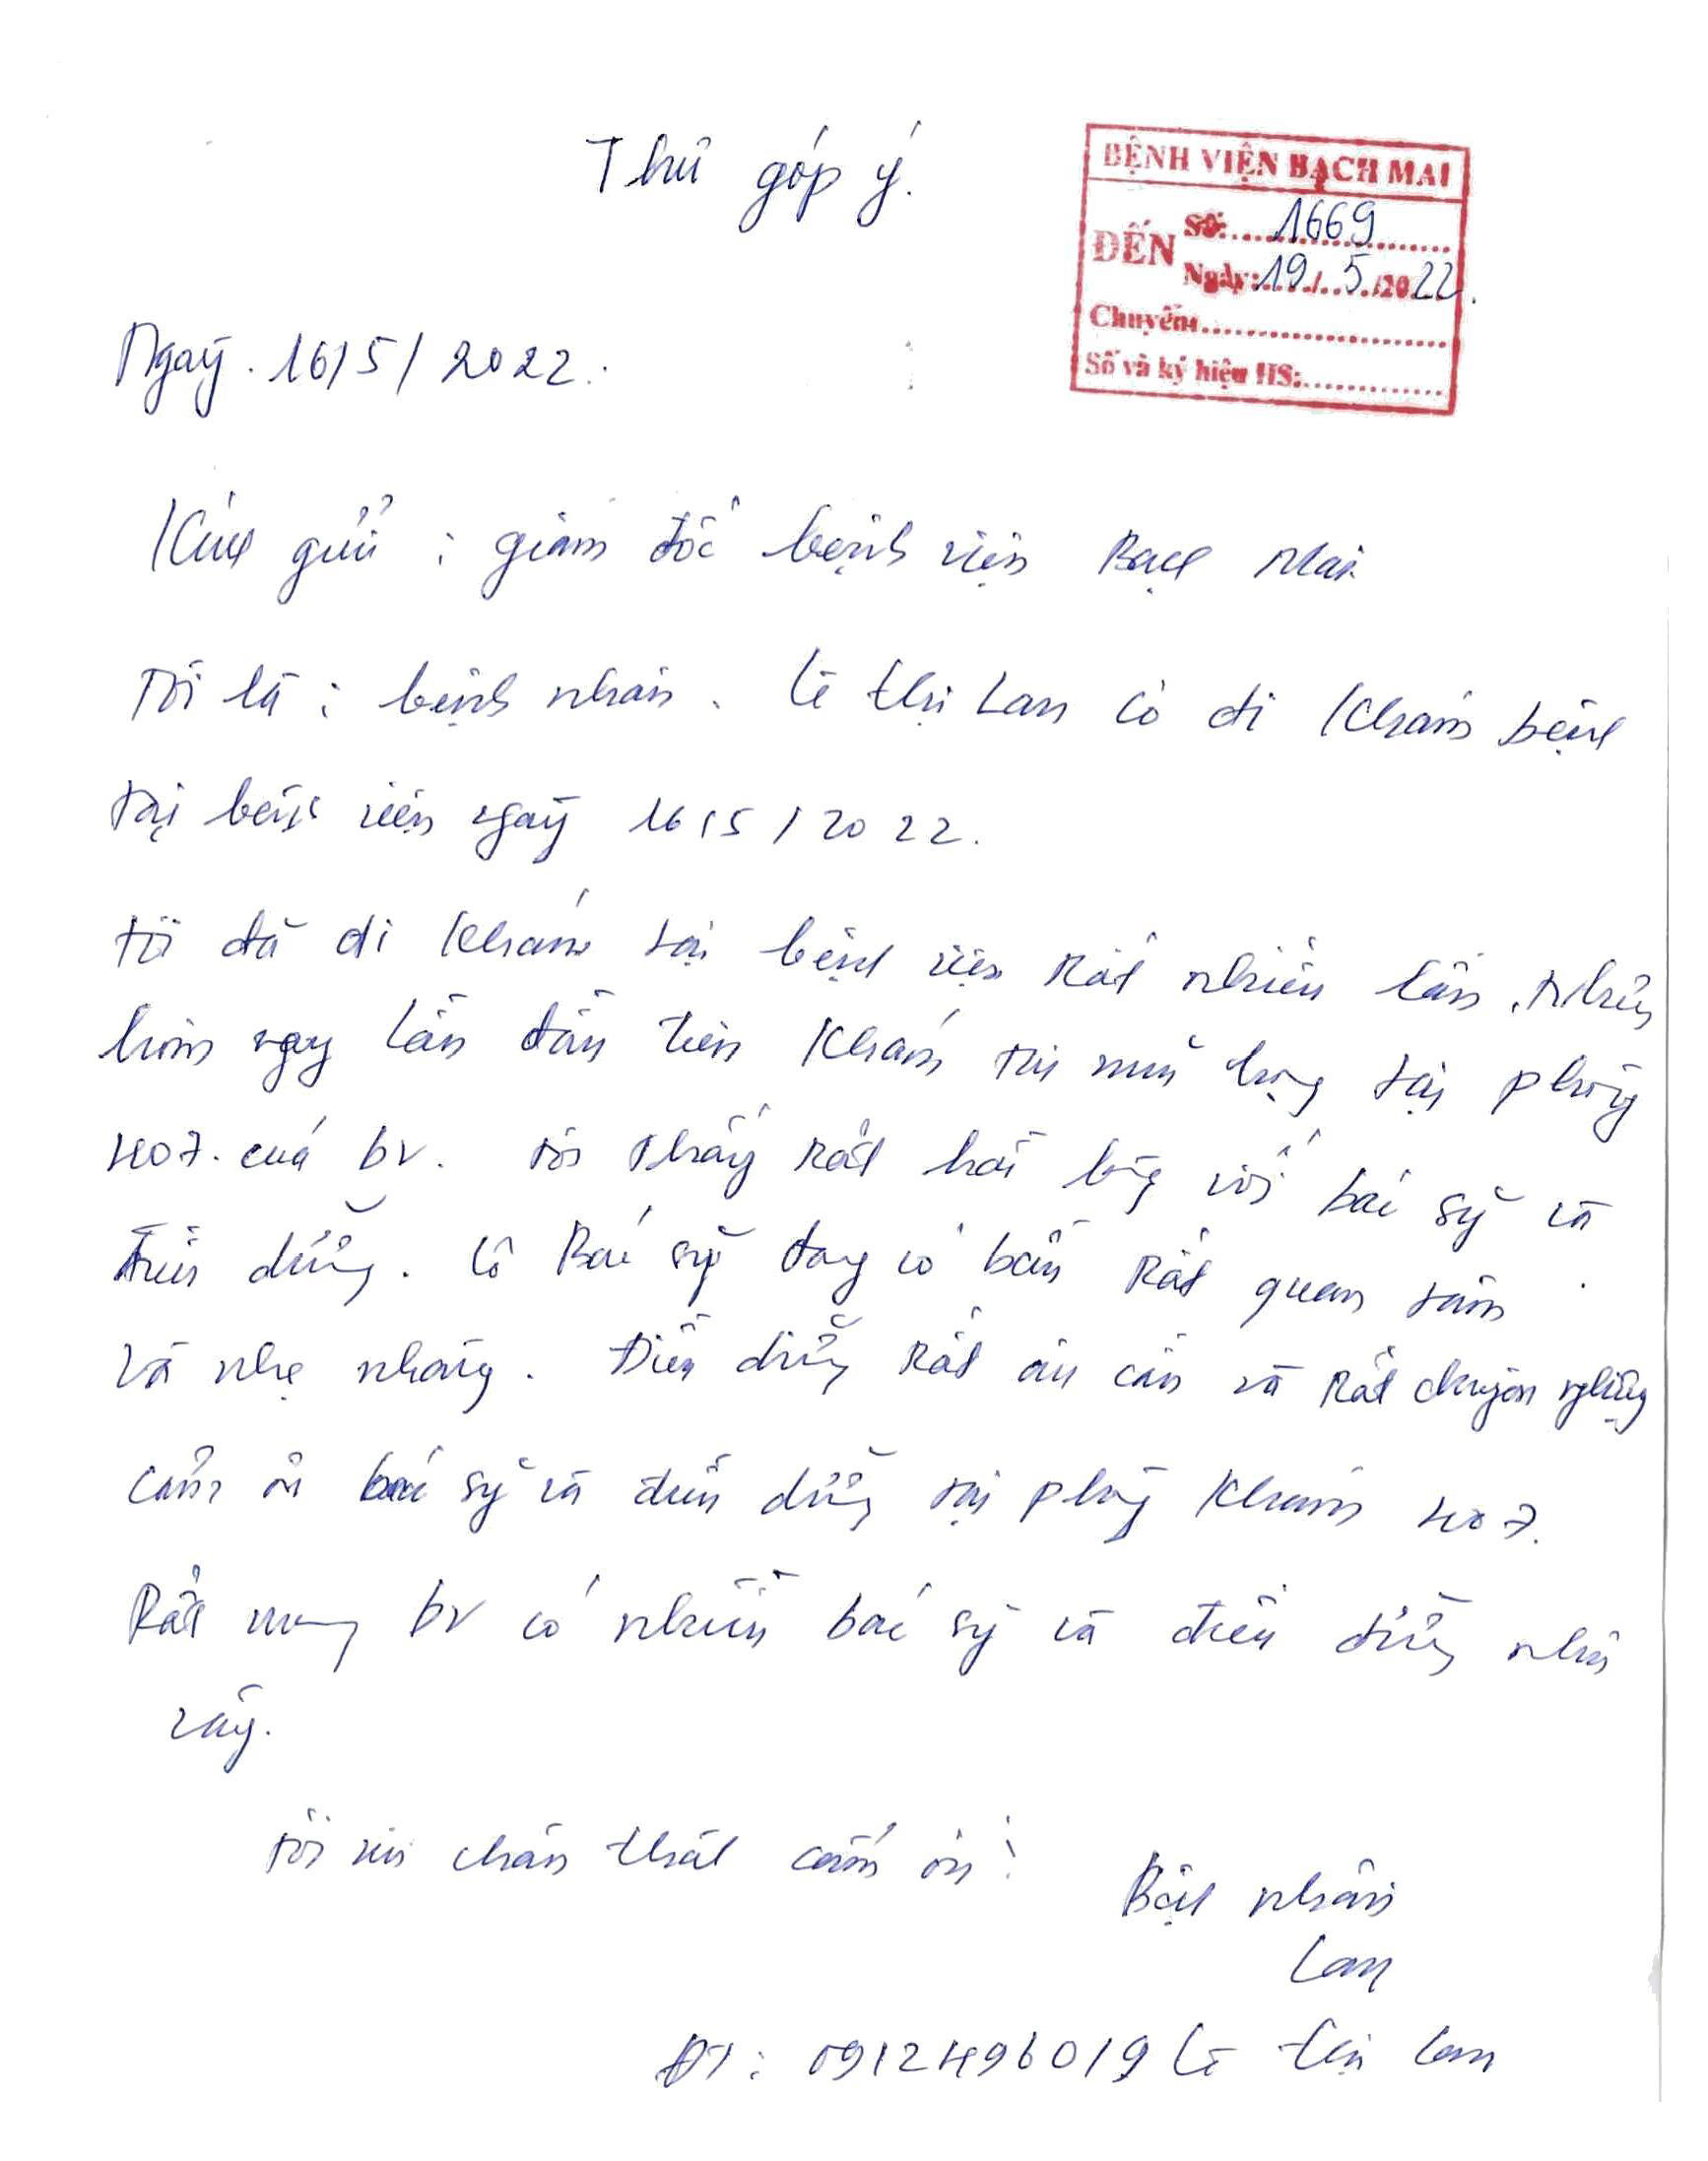 Thư góp ý.
BỆNH VIỆN BẠCH MAI
ĐẾN
Số: 1669
Ngày: 19/5/2022.
Chuyển:
Số và ký hiệu HS:
Ngày. 16/5/2022.
Kính gửi: giám đốc bệnh viện Bạch Mai
Tôi là: bệnh nhân. Lê Thị Lan có đi khám bệnh
tại bệnh viện ngày 16/5/2022.
Tôi đã đi khám tại bệnh viện rất nhiều lần. Nhưng
hôm nay lần đầu tiên khám tai mũi họng tại phòng
407. của bv. tôi thấy rất hài lòng với bác sỹ và
điều dưỡng. Cô Bác sỹ đang có bầu rất quan tâm
và nhẹ nhàng. Điều dưỡng rất ân cần và rất chuyên nghiệp
cảm ơn bác sỹ và điều dưỡng tại phòng khám 407.
Rất mong bv có nhiều bác sỹ và điều dưỡng như
vậy.
tôi xin chân thật cám ơn!
Bệnh nhân
Lan
ĐT: 0912496019 Lê Thị Lan